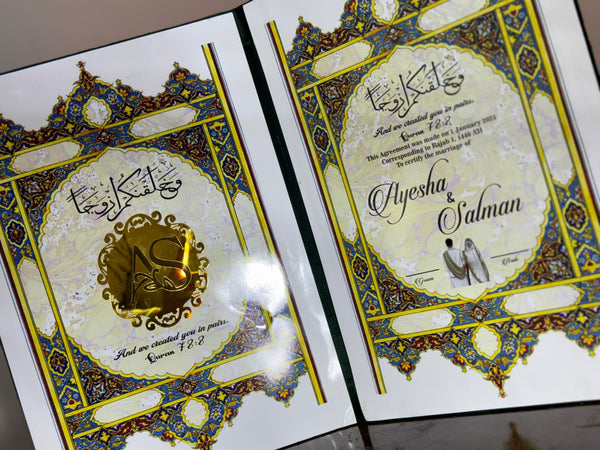 وَخَلَقْنَٰكُمْ أَزْوَٰجًا
AS
And we created you in pairs.
Quran 78:8
وَخَلَقْنَٰكُمْ أَزْوَٰجًا
And we created you in pairs.
Quran 78:8
This Agreement was made on 1 January 2025
Corresponding to Rajab 1, 1446 AH
To certify the marriage of
Ayesha
&
Salman
Groom
Bride